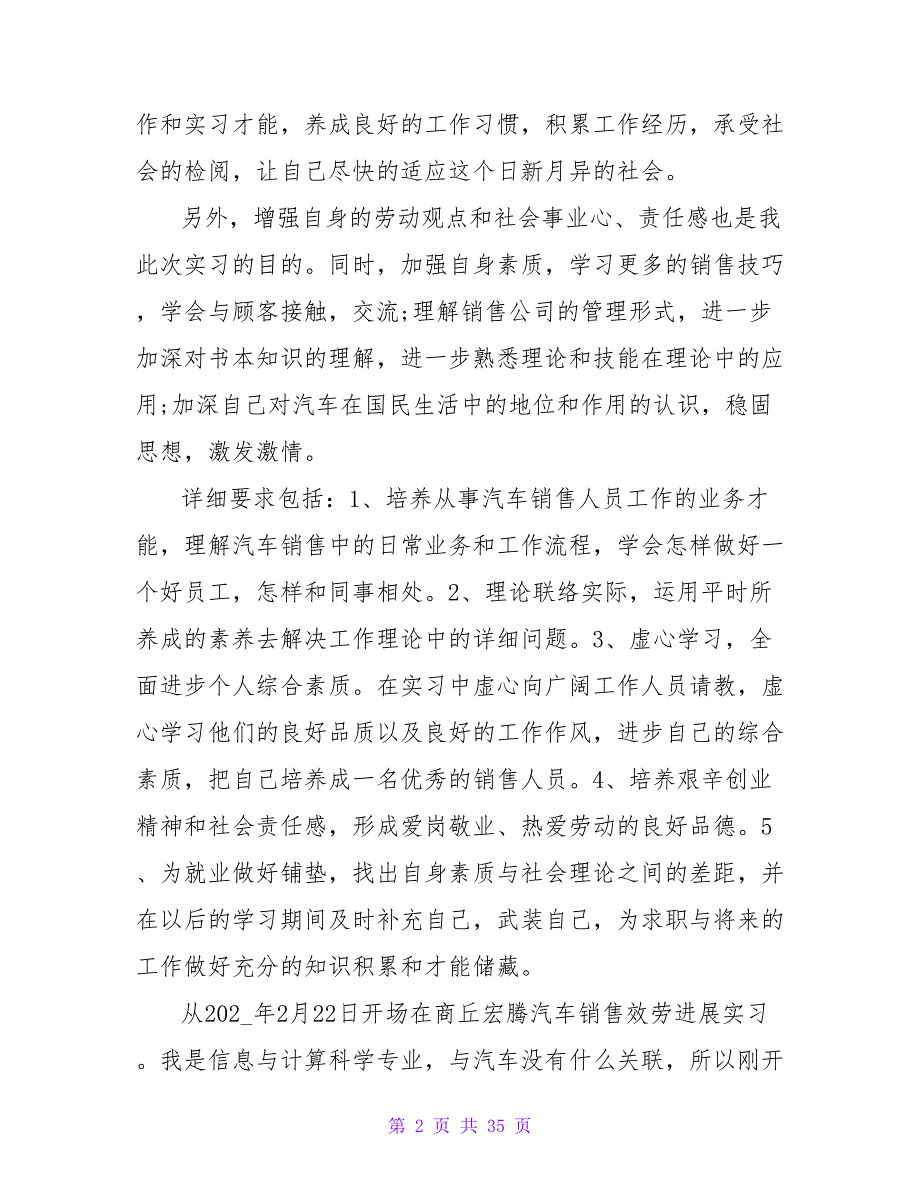 作和实习才能，养成良好的工作习惯，积累工作经历，承受社
会的检阅，让自己尽快的适应这个日新月异的社会。
另外，增强自身的劳动观点和社会事业心、责任感也是我
此次实习的目的。同时，加强自身素质，学习更多的销售技巧
，学会与顾客接触，交流;理解销售公司的管理形式，进一步
加深对书本知识的理解，进一步熟悉理论和技能在理论中的应
用;加深自己对汽车在国民生活中的地位和作用的认识，稳固
思想，激发激情。
详细要求包括：1、培养从事汽车销售人员工作的业务才
能，理解汽车销售中的日常业务和工作流程，学会怎样做好一
个好员工，怎样和同事相处。2、理论联络实际，运用平时所
养成的素养去解决工作理论中的详细问题。3、虚心学习，全
面进步个人综合素质。在实习中虚心向广阔工作人员请教，虚
心学习他们的良好品质以及良好的工作作风，进步自己的综合
素质，把自己培养成一名优秀的销售人员。4、培养艰辛创业
精神和社会责任感，形成爱岗敬业、热爱劳动的良好品德。5
、为就业做好铺垫，找出自身素质与社会理论之间的差距，并
在以后的学习期间及时补充自己，武装自己，为求职与将来的
工作做好充分的知识积累和才能储藏。
从202_年2月22日开场在商丘宏腾汽车销售效劳进展实习
。我是信息与计算科学专业，与汽车没有什么关联，所以刚开
第 2 页 共 35 页